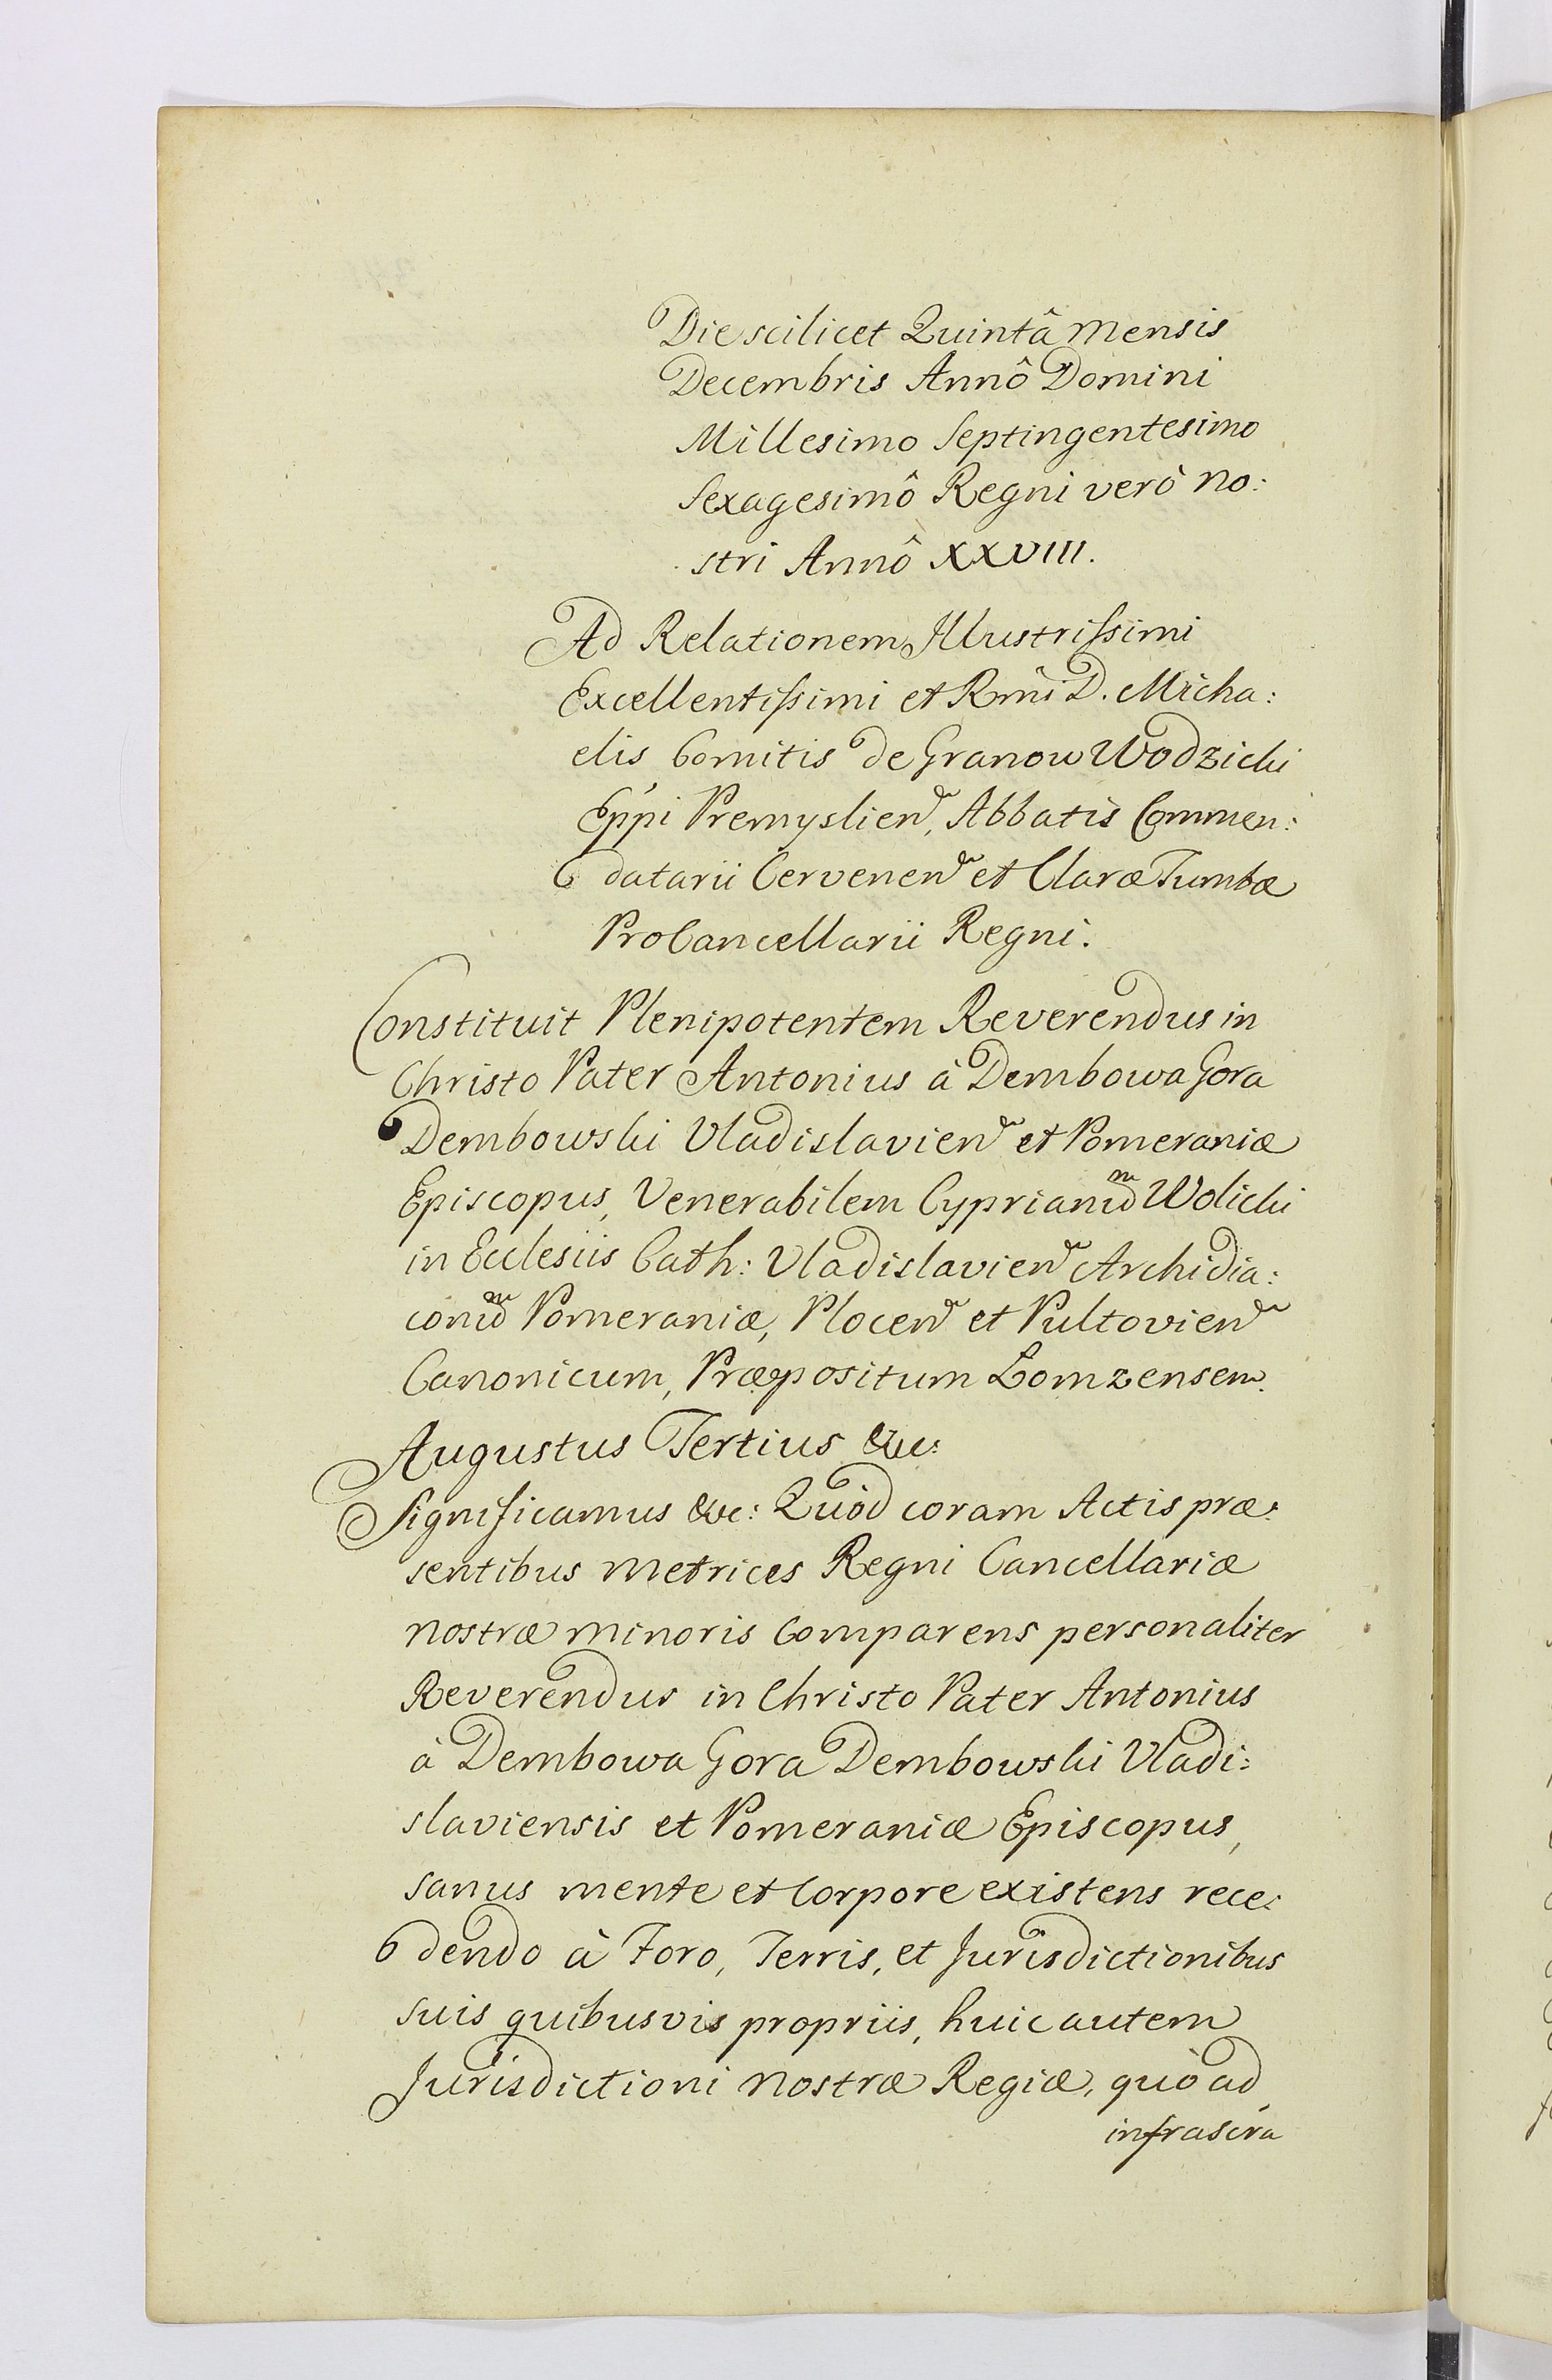 Die scilicet Quintâ mensis
Decembris Annô Domini
Millesimo Septingentesimo
Sexagesimô Regni verò no:
stri Annô XXVIII.
Ad Relationem Illustrissimi
Excellentissimi et Rmi D. Micha:
elis Comitis de Granow Wodzicki
Eppi Premyslien, Abbatis Commen:
datarii Cervenen et Claræ Tumbæ
ProCancellarii Regni.
Constituit Plenipotentem Reverendus in
Christo Pater Antonius à Dembowa Gora
Dembowski Vladislavien et Pomeraniæ
Episcopus, Venerabilem Cyprianum Wolicki
in Ecclesiis Cath: Vladislavien Archidia:
conum Pomeraniæ, Plocen et Pultovien
Canonicum, Præpositum Łomzensem.
Augustus Tertius &c:
Significamus &c: Quòd coram Actis præ:
sentibus metrices Regni Cancellariæ
nostræ minoris Comparens personaliter
Reverendus in Christo Pater Antonius
à Dembowa Gora Dembowski Vladi:
slaviensis et Pomeraniæ Episcopus,
sanus mente et Corpore existens rece:
dendo à Foro, Terris, et Jurisdictionibus
suis quibusvis propriis, huic autem
Jurisdictioni nostræ Regiæ, quò ad
infrascra